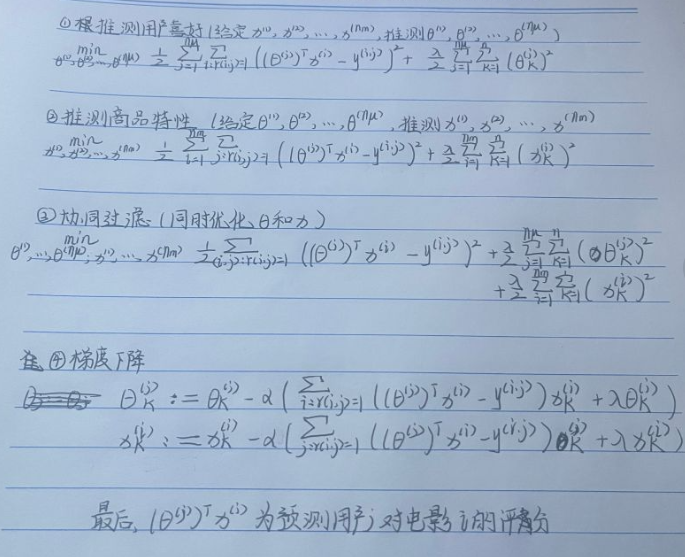 ①根推测用户喜好(给定x⁽¹⁾, x⁽²⁾, ..., x⁽ⁿᵐ⁾,推测θ⁽¹⁾, θ⁽²⁾, ..., θ^(nμ))
min_{θ^(1), θ^(2), ..., θ^(nμ)} 1/2 ∑_{j=1}^{nμ} ∑_{i:r(i,j)=1} ((θ^(j))^T x^(i) − y^(i,j))^2 + λ/2 ∑_{j=1}^{nμ} ∑_{k=1}^{n} (θ_k^(j))^2
②推测商品特性 (给定θ^(1), θ^(2), ..., θ^(nμ), 推测x^(1), x^(2), ..., x^(nm)
min_{x^(1), x^(2), ..., x^(nm)} 1/2 ∑_{i=1}^{nm} ∑_{j:r(i,j)=1} ((θ^(j))^T x^(i) − y^(i,j))^2 + λ/2 ∑_{i=1}^{nm} ∑_{k=1}^{n} (x_k^(i))^2
③协同过滤(同时优化θ和x)
min_{θ^(1), ..., θ^(nμ); x^(1), ..., x^(nm)} 1/2 ∑_{(i,j):r(i,j)=1} ((θ^(j))^T x^(i) − y^(i,j))^2 + λ/2 ∑_{j=1}^{nμ} ∑_{k=1}^{n} (θ_k^(j))^2
+ λ/2 ∑_{i=1}^{nm} ∑_{k=1}^{n} (x_k^(i))^2
④梯度下降
θ_k^(j) := θ_k^(j) − α(∑_{i:r(i,j)=1} ((θ^(j))^T x^(i) − y^(i,j)) x_k^(i) + λθ_k^(j))
x_k^(i) := x_k^(i) − α(∑_{j:r(i,j)=1} ((θ^(j))^T x^(i) − y^(i,j)) θ_k^(j) + λx_k^(i))
最后, (θ^(j))^T x^(i) 为预测用户j对电影i的评分